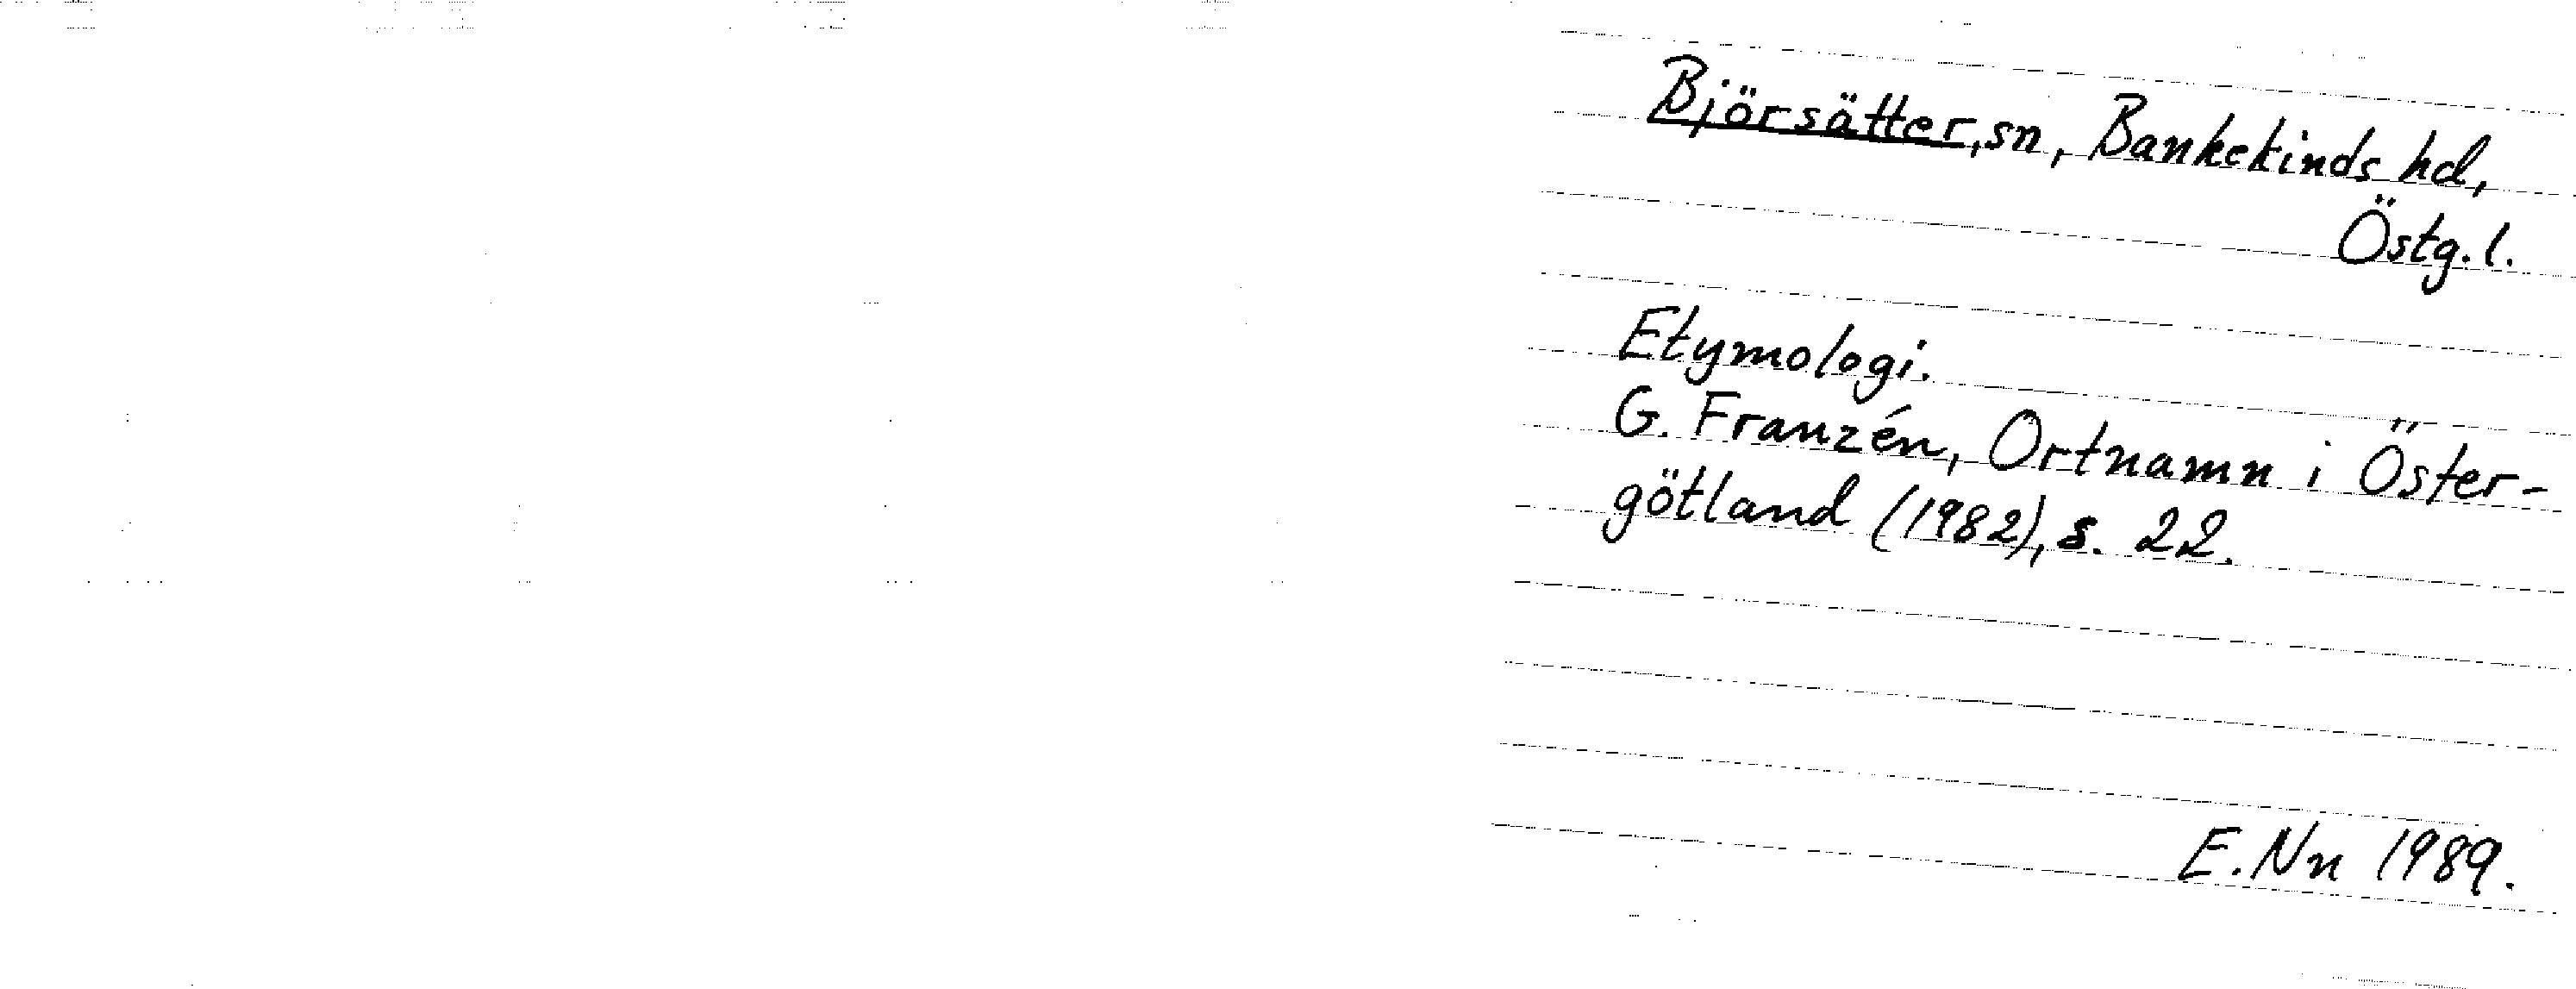 Björsätter, sn, Bankekinds hd,
Östg. l.
Etymologi.
G. Franzén, Ortnamn i Öster-
götland (1982), s. 22.
E. Nn 1989.